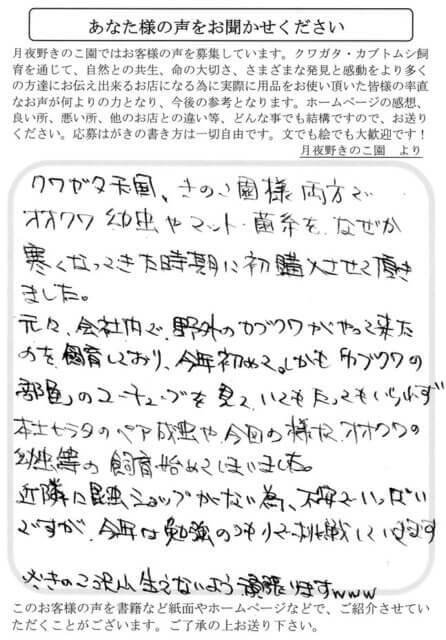 あなた様の声をお聞かせください
月夜野きのこ園ではお客様の声を募集しています。クワガタ・カブトムシ飼
育を通じて、自然との共生、命の大切さ、さまざまな発見と感動をより多く
の方達にお伝え出来るお店になる為に実際に用品をお使い頂いた皆様の率直
なお声が何よりの力となり、今後の参考となります。ホームページの感想、
良い所、悪い所、他のお店との違い等、どんな事でも結構ですので、お送り
ください。応募はがきの書き方は一切自由です。文でも絵でも大歓迎です！
月夜野きのこ園　より
クワガタ天国、きのこ園様両方で
オオクワ幼虫やマット・菌糸を、なぜか
寒くなってきた時期に初購入させて頂き
ました。
元々、会社内で、野外のカブクワがやって来た
のを飼育しており、今年初めて。しかも「カブクワの
部屋」のユーチューブを見て、いてもたってもいられず
本土ヒラタのペア成虫や、今回の様な、オオクワの
幼虫等の飼育始めてしまいました。
近隣に昆虫ショップがない為、不安でいっぱい
ですが、今年は勉強のつもりで挑戦しています
きのこ沢山生えないよう頑張りますwww
このお客様の声を書籍など紙面やホームページなどで、ご紹介させてい
ただくことがございます。ご了承の上お送り下さい。